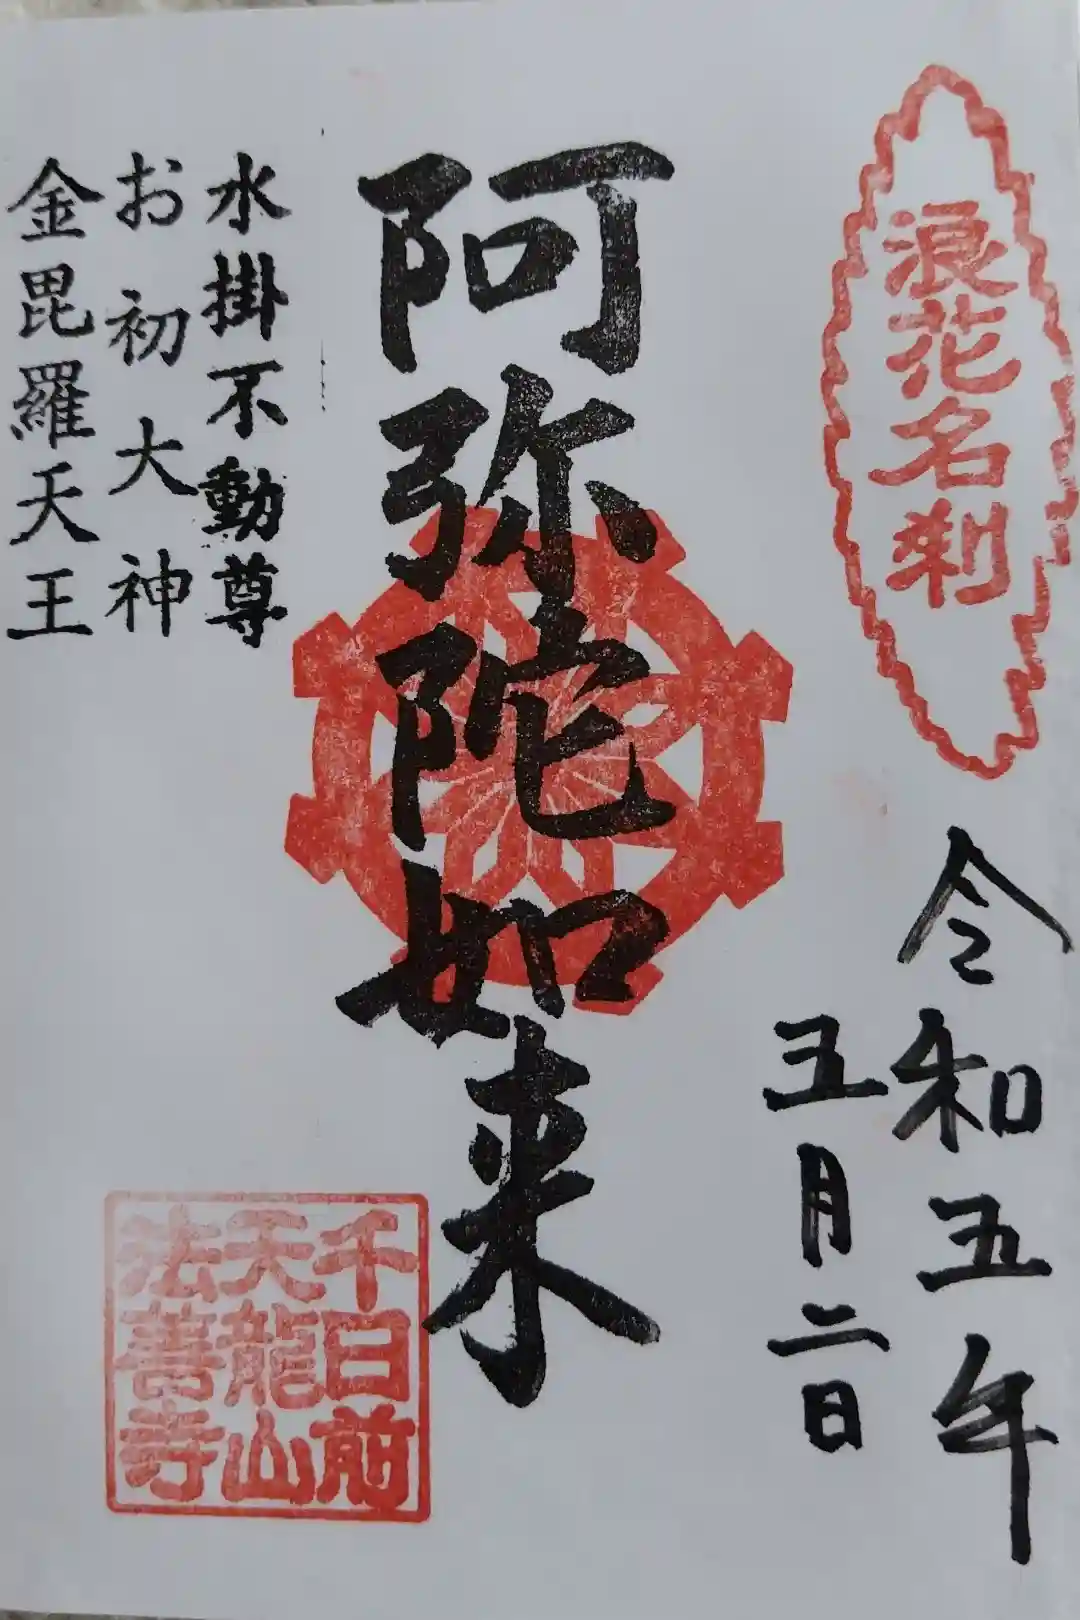 浪花名刹
令和五年
五月二日
阿弥陀如来
水掛不動尊
お初大神
金毘羅天王
千日前
天龍山
法善寺